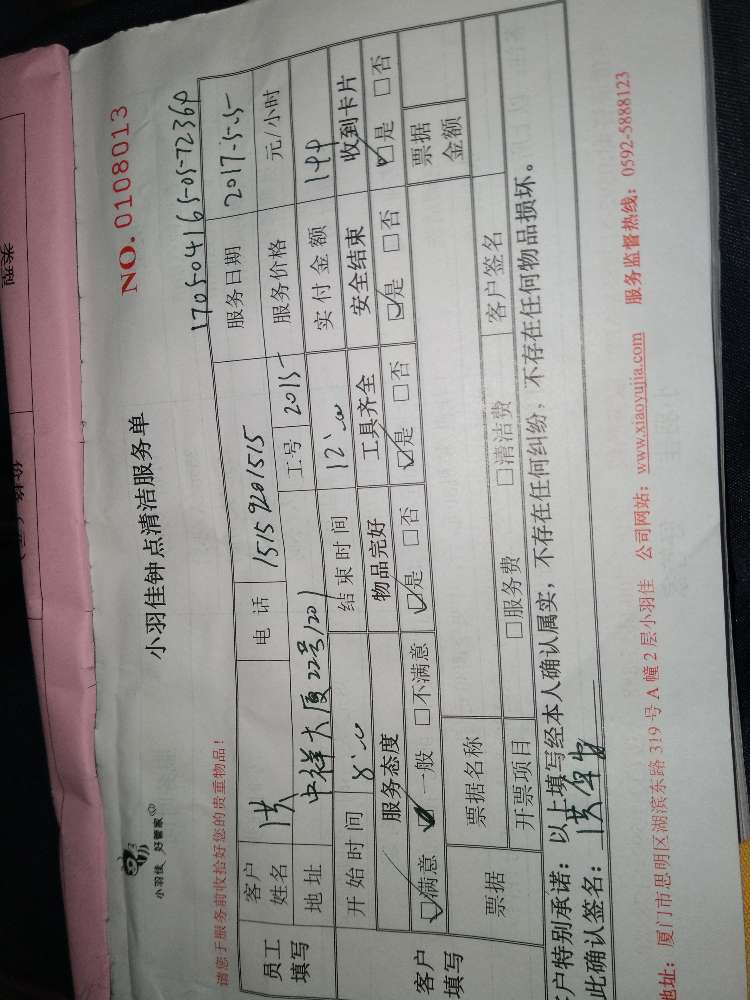 小羽佳 好管家
小羽佳钟点清洁服务单
NO. 0108013
请您于服务前收拾好您的贵重物品!
170504165-05-72364
员工填写
客户姓名 洪 电话 15159201515 服务日期 2017-5-5
地址 中祥大厦22号1201 工号 2015 服务价格 元/小时
开始时间 8:00 结束时间 12:00 实付金额 144
客户填写
服务态度 物品完好 工具齐全 安全结束 收到卡片
☑满意 ☑一般 □不满意 ☑是 □否 ☑是 □否 ☑是 □否 ☑是 □否
票据 票据名称 票据金额
开票项目 □服务费 □清洁费 客户签名
户特别承诺:以上填写经本人确认属实,不存在任何纠纷,不存在任何物品损坏。
此确认签名: 洪
地址:厦门市思明区湖滨东路 319 号 A 幢 2 层小羽佳 公司网站:www.xiaoyujia.com 服务监督热线:0592-5888123